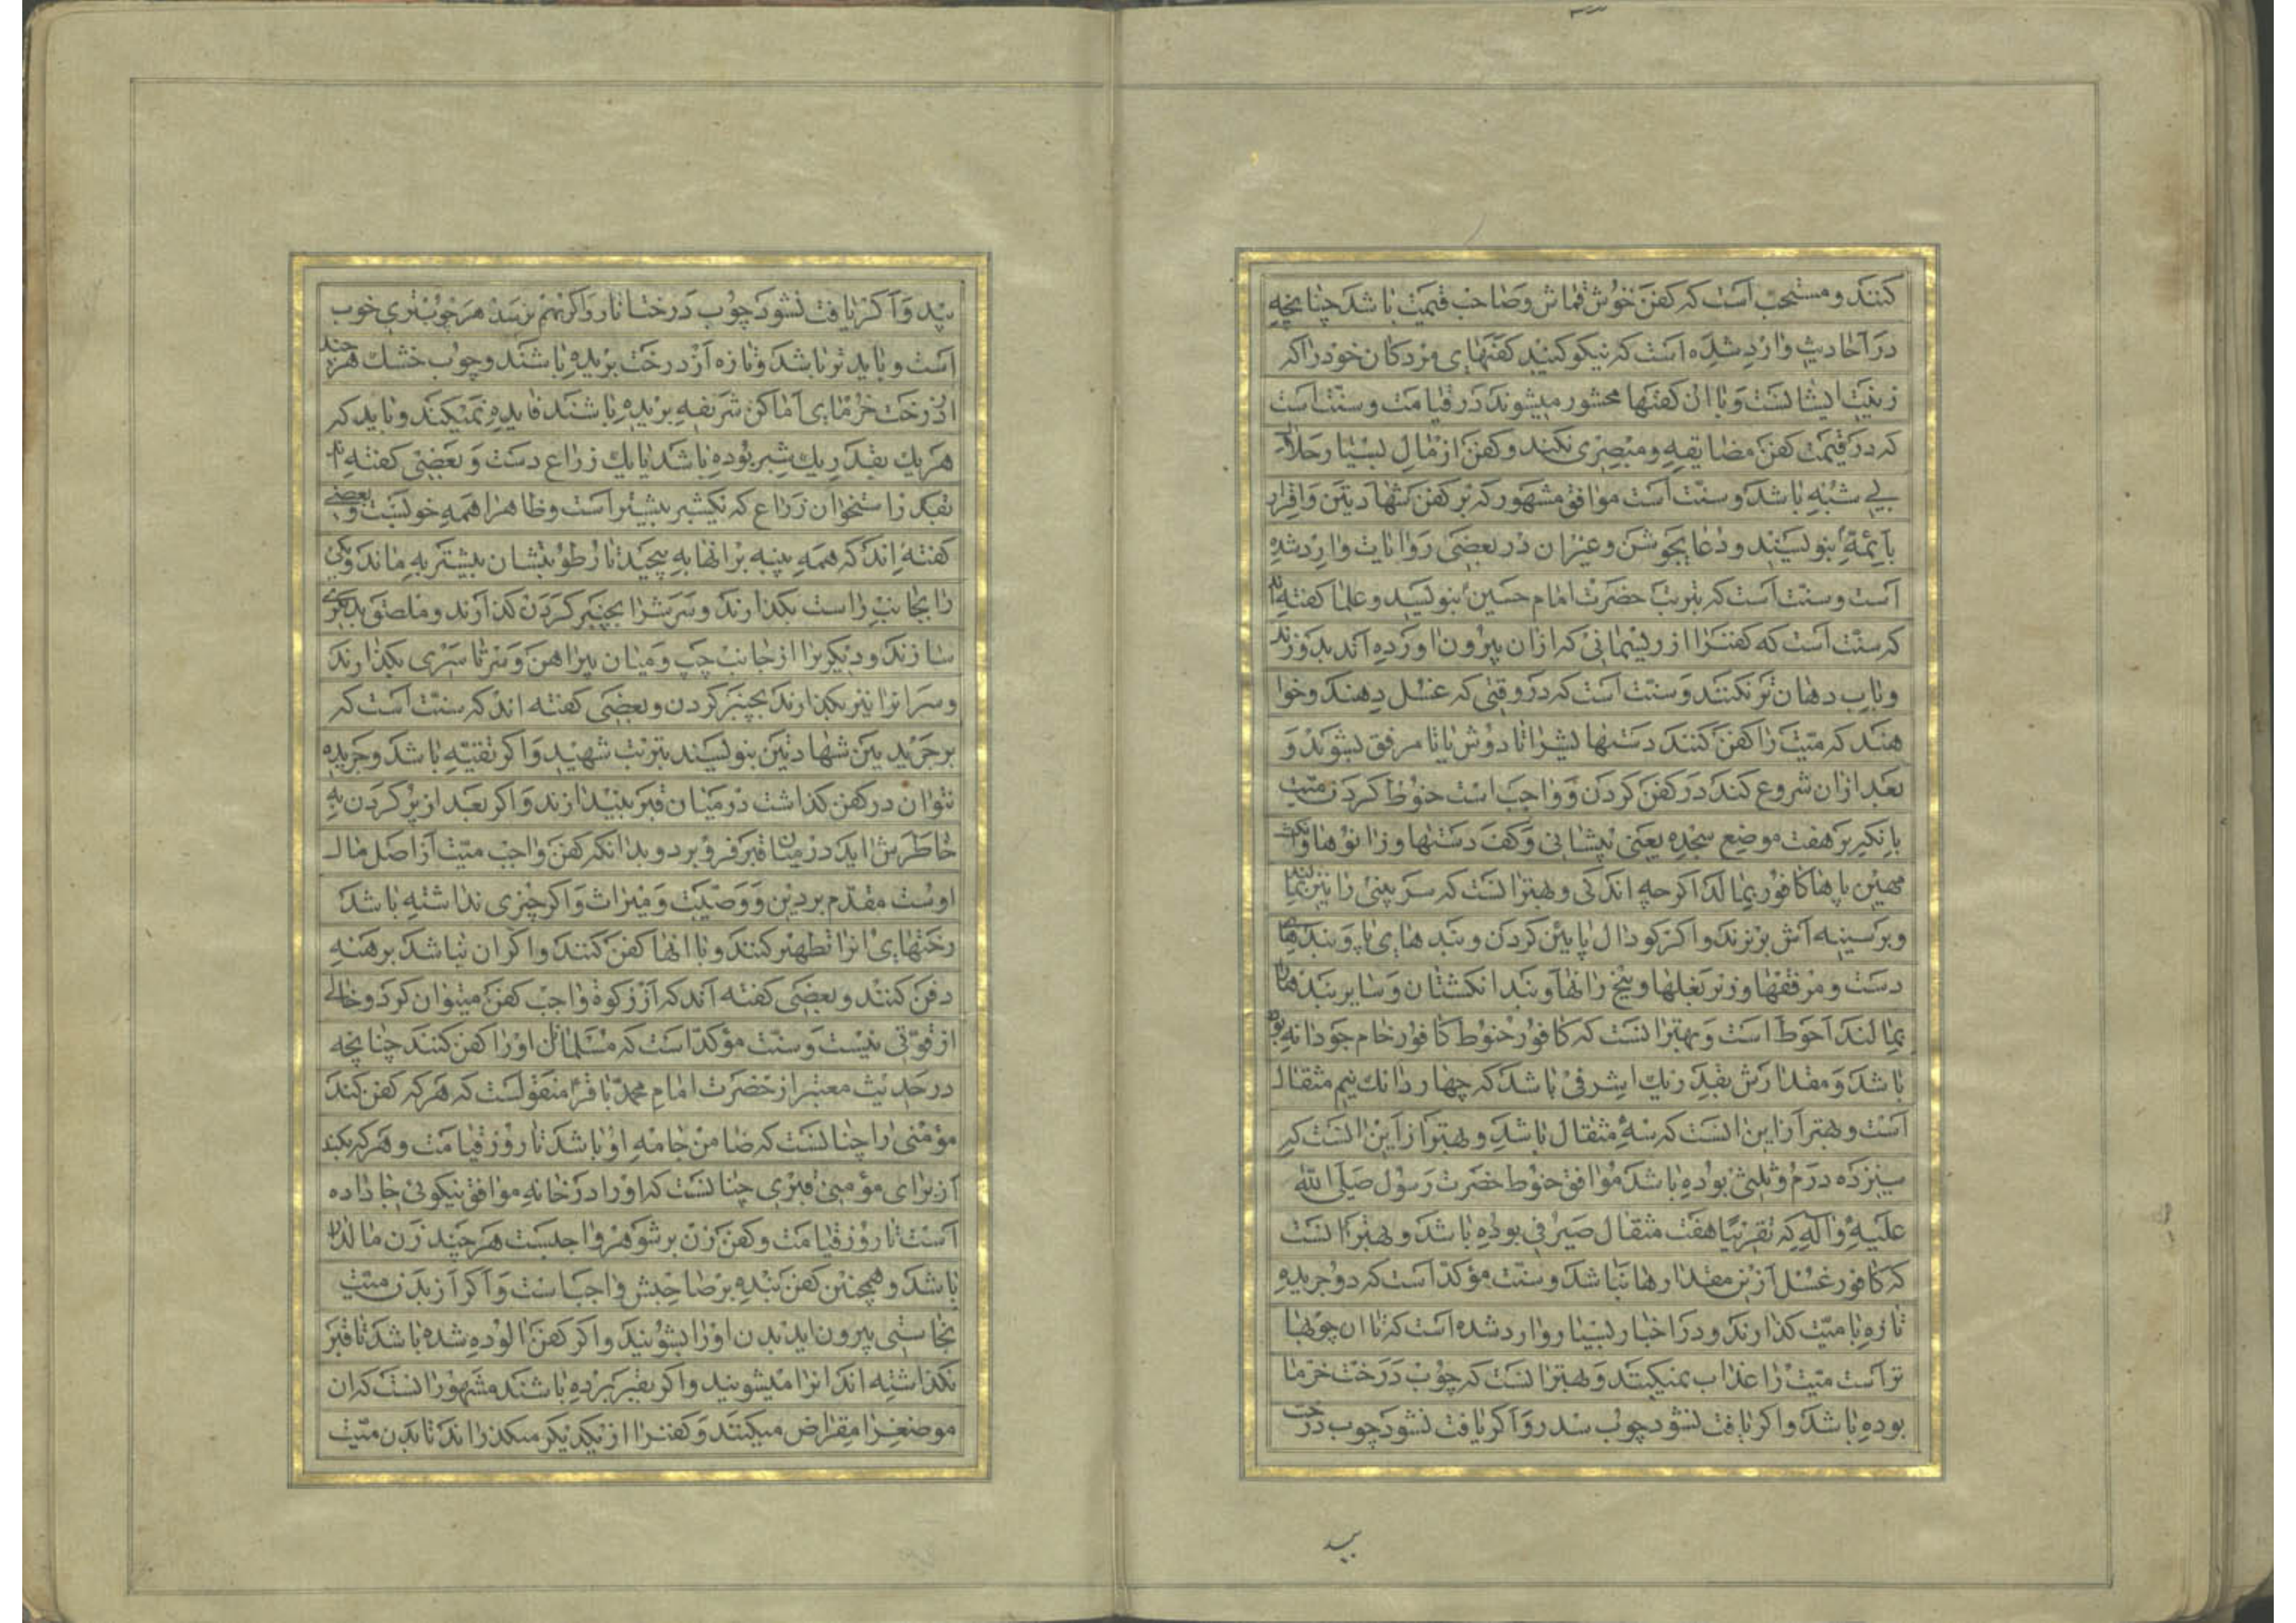 کنند و مستحب است که کفن خوش قماش و صاحب قیمت باشد چنانچه
در احادیث وارد شده است که نیکو کنید کفنهای مردکان خود را که
زینت ایشانست و با ان کفنها محشور میشوند در قیامت و سنت است
که در قیمت کفن مضایقه و مبصری نکنند و کفن از مال بسیار حلال
بی شبهه باشد و سنت است موافق مشهور که بر کفن شهادتین و اقرار
بائمه بنویسند و دعا بجوشن و غیر ان در بعضی روایات وارد شده
است و سنت است که بتربت حضرت امام حسین بنویسند و علما کفته اند
که سنت است که کفن را از ریسمانی که از ان بیرون اورده اند بدوزند
و باب دهان تر نکنند و سنت است که در وقتی که غسل دهند و خوا
هند که میت را کفن کنند دستهایش را تا دوش یا تا مرفق بشویند و
بعد از ان شروع کنند در کفن کردن و واجب است حنوط کردن میت
باینکه بر هفت موضع سجده یعنی پیشانی و کف دستها و زانوها و انکشت
مهین پاها کافور بمالند اکر چه اندکی و بهتر انست که سر بینی را نیز بمالند
و بر سینه اش بریزند و اکر کودال پایین کردن و بندهای پا و بندهای
دست و مرفقها و زیر بغلها و بیخ رانها و بند انکشتان و سایر بندها
بمالند احوط است و بهتر انست که کافور حنوط کافور خام جودانه بوده
باشد و مقدارش بقدر یک اشرفی باشد که چهار دانک نیم مثقال
است و بهتر از این انست که سه مثقال باشد و بهتر از این انست که
سیزده درم و ثلثی بوده باشد موافق حنوط حضرت رسول صلی الله
علیه و اله که تقریبا هفت مثقال صیرفی بوده باشد و بهتر انست
که کافور غسل از این مقدارها نباشد و سنت مؤکد است که دو جریده
تازه با میت کذارند و در اخبار بسیار وارد شده است که تا ان چوبها
تر است میت را عذاب نمیکنند و بهتر انست که چوب درخت خرما
بوده باشد و اکر یافت نشود چوب سدر و اکر یافت نشود چوب درخت
بید
بید و اکر یافت نشود چوب درخت انار و اکر بهم نرسد هر چوب تری خوب
است و باید تر باشد و تازه از درخت بریده باشند و چوب خشک هر چند
از درخت خرمای اماکن شریفه بریده باشند فایده نمیکند و باید که
هر یک بقدر یک شبر بوده باشد یا یک ذراع دست و بعضی کفته اند
بقدر استخوان ذراع که یکشبر بیشتر است و ظاهرا همه خوبست و بعضی
کفته اند که همه پنبه بر انها به پیچید تا رطوبتشان بیشتر به ماند و یکی
را بجانب راست بکذارند و سرش را بچنبر کردن کذارند و ملصق ببدن
سازند و دیکریرا از جانب چپ و میان پیراهن و سرتاسری بکذارند
و سر انرا نیز بکذارند بچنبر کردن و بعضی کفته اند که سنت است که
بر جریدتین شهادتین بنویسند بتربت شهید و اکر تقیه باشد و جریده
نتوان در کفن کذاشت در میان قبر بیندازند و اکر بعد از پر کردن به
خاطرش اید در میان قبر فرو برد و بدانکه کفن واجب میت از اصل مال
اوست مقدم بر دین و وصیت و میراث و اکر چیزی نداشته باشد
رختهای انرا تطهیر کنند و با انها کفن کنند و اکر ان نباشد برهنه
دفن کنند و بعضی کفته اند که از زکوة واجب کفن میتوان کرد و خالی
از قوتی نیست و سنت مؤکد است که مسلمانان او را کفن کنند چنانچه
در حدیث معتبر از حضرت امام محمد باقر منقولست که هر که کفن کند
مؤمنی را چنانست که ضامن جامه او باشد تا روز قیامت و هر که بکند
از برای مؤمنی قبری چنانست که او را در خانه موافق نیکوئی جا داده
است تا روز قیامت و کفن زن بر شوهر واجبست هر چند زن مالدار
باشد و همچنین کفن بنده بر صاحبش واجب است و اکر از بدن میت
نجاستی بیرون اید بدن او را بشویند و اکر کفن الوده شده باشد تا قبر
نکذاشته اند انرا میشویند و اکر بقبر برده باشند مشهور انست که ان
موضع را مقراض میکنند و کفن را از یکدیکر میکذرانند تا بدن میت